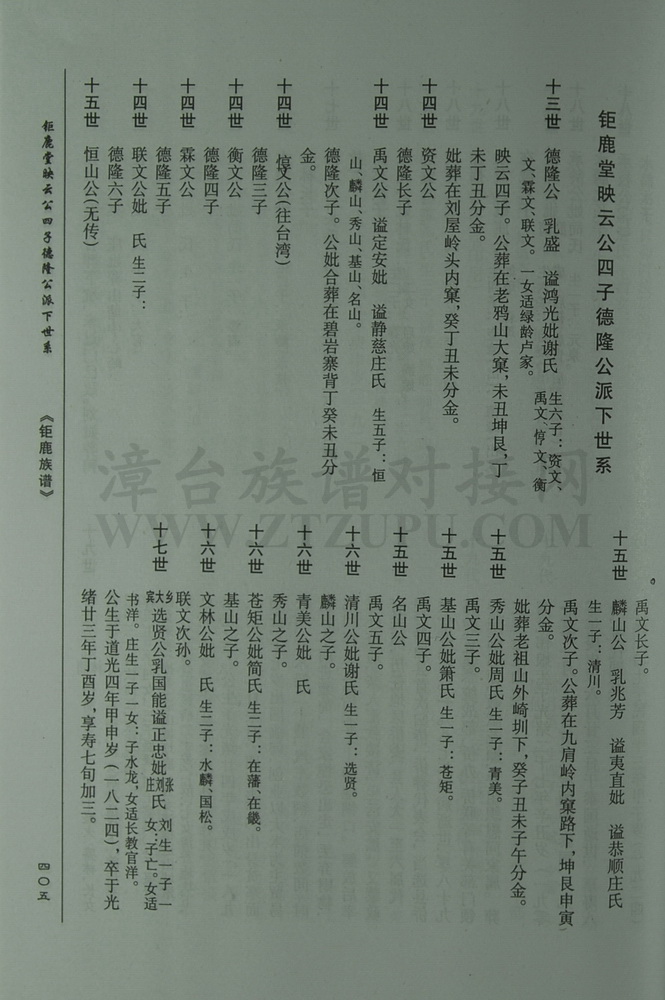 钜鹿堂映云公四子德隆公派下世系
十三世 德隆公 乳盛 谥鸿光妣谢氏 生六子：资文、禹文、惇文、衡
文、霖文、联文。一女适绿龄卢家。
映云四子。公葬在老鸦山大窠，未丑坤艮，丁
未丁丑分金。
妣葬在刘屋岭头内窠，癸丁丑未分金。
十四世 资文公
德隆长子
十四世 禹文公 谥定安妣 谥静慈庄氏 生五子：恒
山、麟山、秀山、基山、名山。
德隆次子。公妣合葬在碧岩寨背丁癸未丑分
金。
十四世 惇文公(往台湾)
德隆三子
十四世 衡文公
德隆四子
十四世 霖文公
德隆五子
十四世 联文公妣 氏 生二子：
德隆六子
十五世 恒山公(无传)
禹文长子。
十五世 麟山公 乳兆芳 谥夷直妣 谥恭顺庄氏
生一子：清川。
禹文次子。公葬在九肩岭内窠路下，坤艮申寅
分金。
妣葬老祖山外崎圳下，癸子丑未子午分金。
十五世 秀山公妣周氏 生一子：青美。
禹文三子。
十五世 基山公妣箫氏 生一子：苍矩。
禹文四子。
十五世 名山公
禹文五子。
十六世 清川公妣谢氏 生一子：选贤。
麟山之子。
十六世 青美公妣 氏
秀山之子。
十六世 苍矩公妣简氏 生二子：在藩、在畿。
基山之子。
十六世 文林公妣 氏 生二子：水麟、国松。
联文次孙。
十七世 乡大宾 选贤公乳国能谥正忠妣张刘庄氏 刘生一子一女：子亡。女适
书洋。庄生一子一女：子水龙，女适长教官洋。
公生于道光四年甲申岁(一八二四)，卒于光
绪廿三年丁酉岁，享寿七旬加三。
钜鹿堂映云公四子德隆公派下世系
《钜鹿族谱》
四〇五
漳台族谱对接网
WWW.ZTZUPU.COM